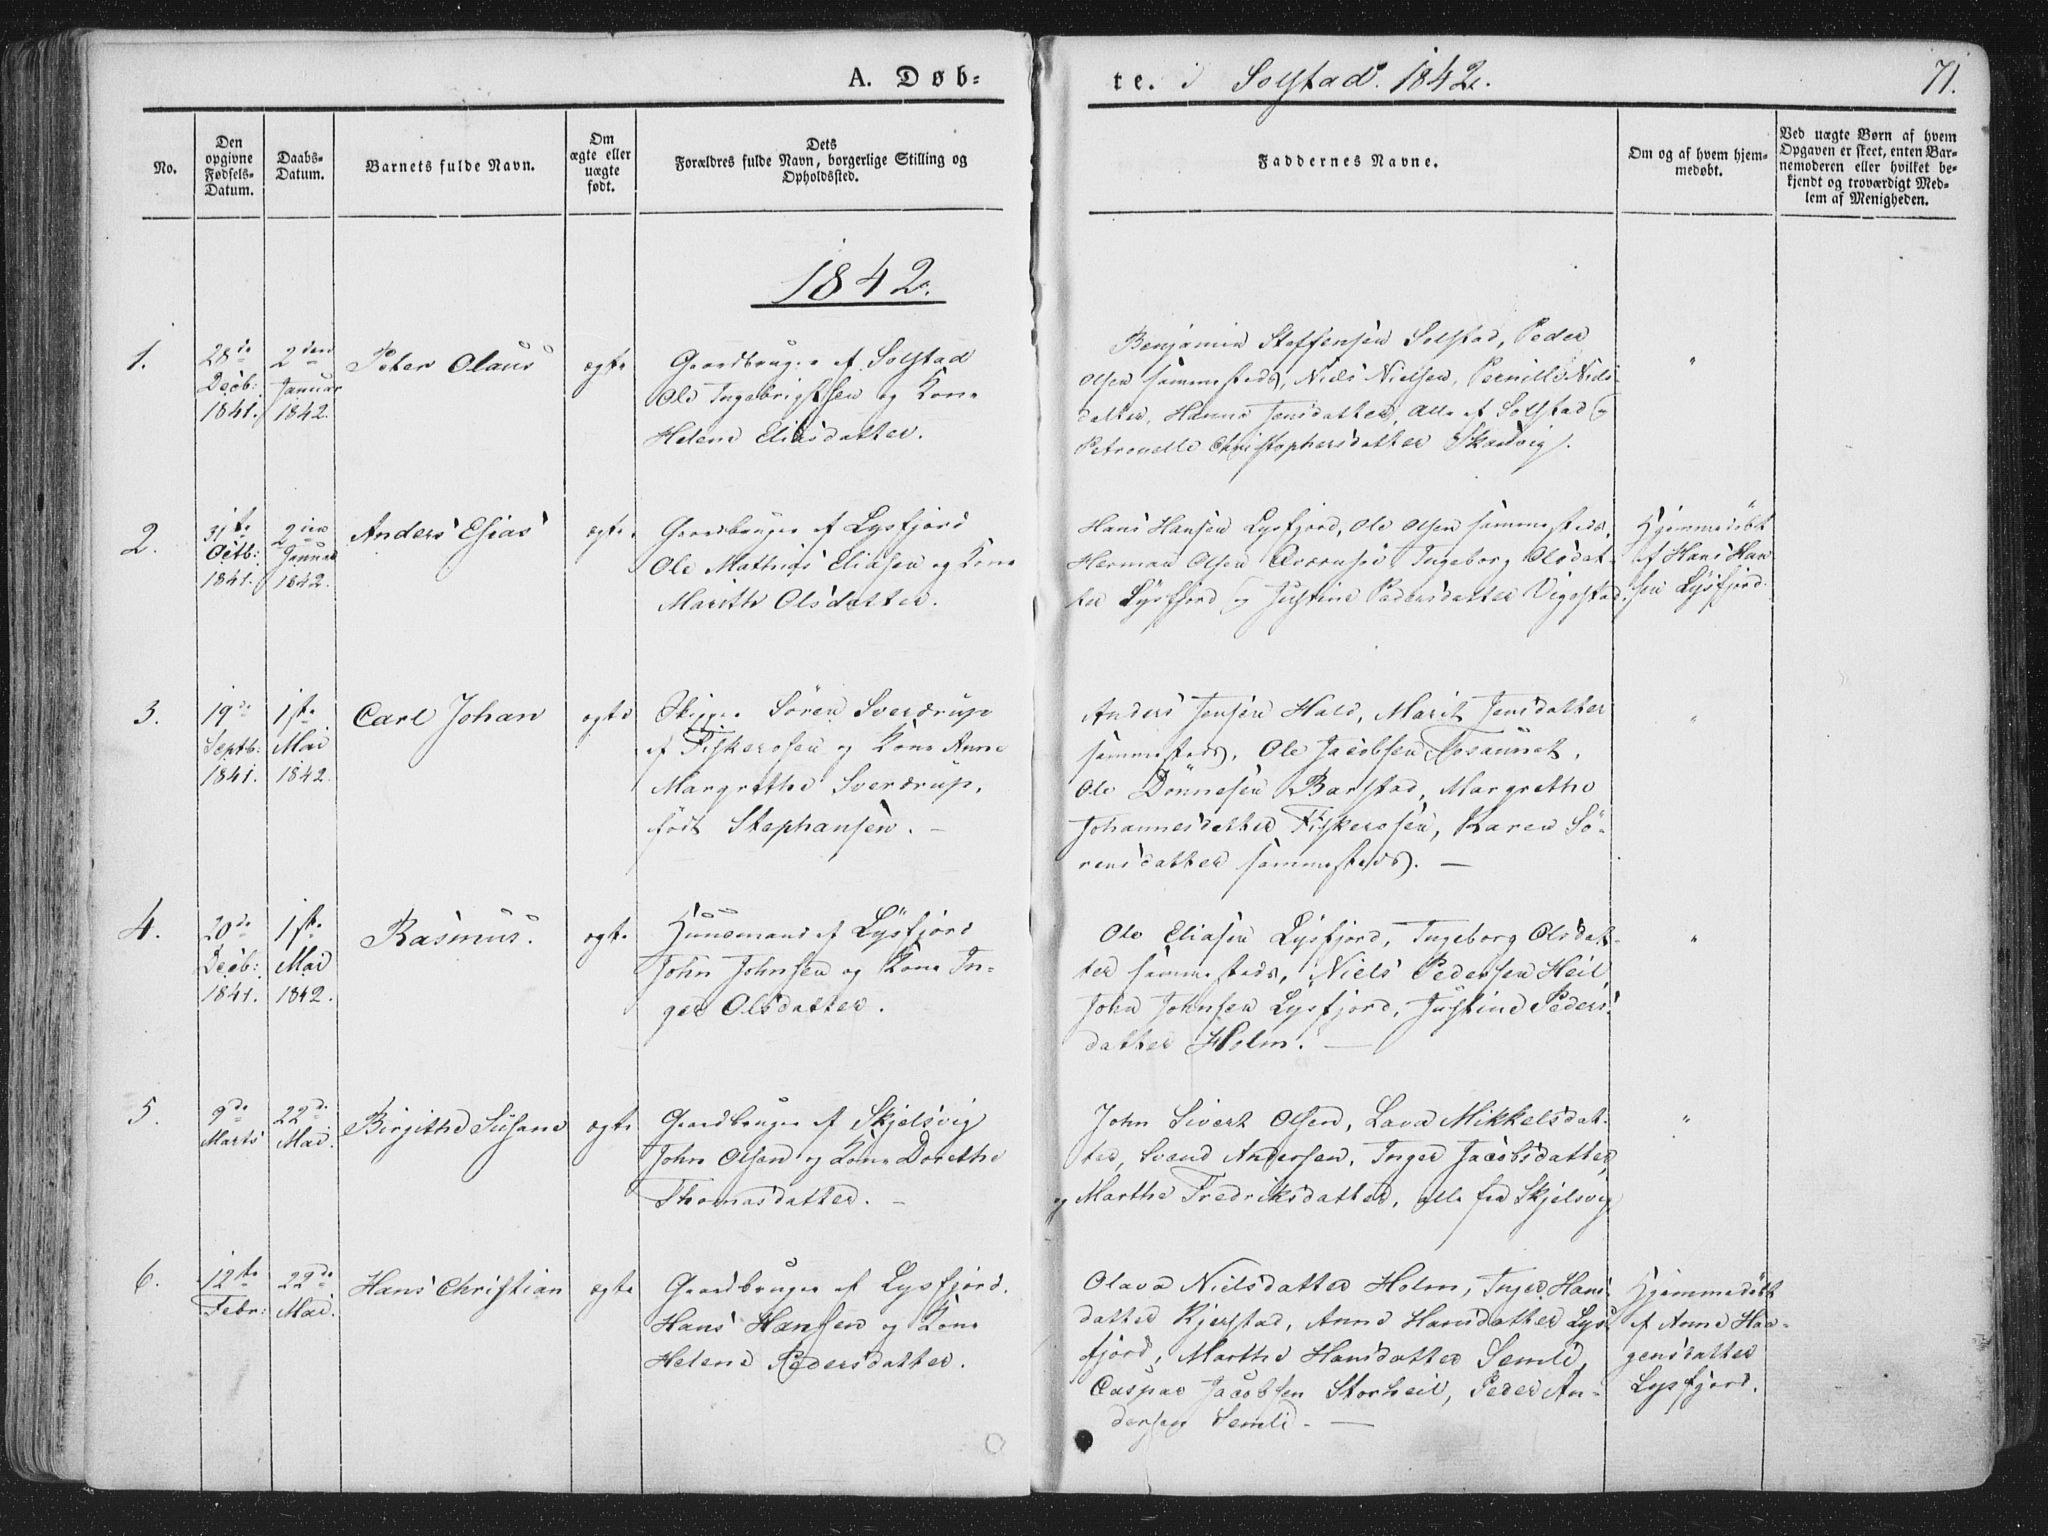 A. Døb-
te. i Solstad. 1842.
71.
No.
Den opgivne Fødsels-Datum.
Daabs-Datum.
Barnets fulde Navn.
Om ægte eller uægte født.
Dets Forældres fulde Navn, borgerlige Stilling og Opholdssted.
Faddernes Navne.
Om og af hvem hjem-medøbt.
Ved uægte Børn af hvem Opgaven er skeet, enten Bar-nemoderen eller hvilket be-kjendt og troværdigt Med-lem af Menigheden.
1842.
1.
28de
Decb:
1841.
2den
Januar
1842.
Peter Olaus
ægte
Gaardbruger af Solstad
Ole Ingebrigtsen og Kone
Helene Eliasdatter.
Benjamin Steffensen Solstad, Peder
Olsen sammesteds, Niels Nielsen, Pernille Niels-
datter, Hanne Jensdatter, alle af Solstad og
Petronelle Christophersdatter Skadvig.
"
2.
31te
Octb:
1841.
2den
Januar
1842.
Anders Esias
ægte.
Gaardbruger af Lysfjord
Ole Mathias Eliasen og Kone
Marith Olsdatter.
Hans Hansen Lysfjord, Ole Olsen sammesteds,
Herman Olsen Ingeborg Olsdat-
ter Lysfjord og Justine Pedersdatter Vigestad.
Hjemmedøbt
af Hans Han
sen Lysfjord.
3.
19de
Septb:
1841.
1ste
Mai
1842.
Carl Johan
ægte
Skipper Sören Sverdrup
af Fiskerosen og Kone Anne
Margrethe Sverdrup,
født Stephansen. -
Anders Jensen Hald, Marit Jensdatter
sammesteds, Ole Jacobsen Tosaunet,
Ole Dönnesen Barstad, Margrethe
Johannesdatter Fiskerosen, Karen Sö-
rensdatter sammesteds. —
"
4.
20de
Decb:
1841.
1ste
Mai
1842.
Rasmus.
ægte
Huusmand af Lysfjord
John Johnsen og Kone In-
ger Olsdatter.
Ole Eliasen Lysfjord, Ingeborg Olsdat-
ter sammesteds, Niels Pedersen Heil
John Johnsen Lysfjord, Justine Peders-
datter Holm. —
"
5.
9de
Marts
22de
Mai.
Birgithe Susane
ægte
Gaardbruger af Skjelsvig
John Olsen og Kone Dorethe
Thomasdatter. -
John Sivert Olsen, Lava Mikkelsdat-
ter, Svend Andersen, Inger Jacobsdatter,
og Marthe Fredriksdatter, alle fra Skjelsvig
"
6.
12te
Febr:
22de
Mai.
Hans Christian
ægte
Gaardbruger af Lysfjord.
Hans Hansen og Kone
Helene Pedersdatter.
Olava Nielsdatter Holm, Inger Hans-
datter Kjerstad, Anne Hansdatter Lys-
fjord, Marthe Hansdatter Semli,
Caspar Jacobsen Storheil, Peder An-
dersen Semli. —
Hjemmedøbt
af Anne Haa-
gensdatter
Lysfjord.